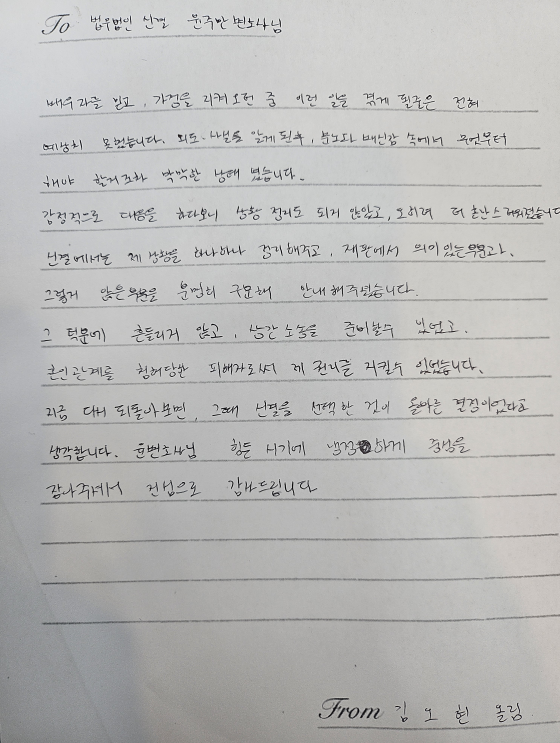 To 법무법인 신결 윤주만변호사님
배우자를 믿고, 가정을 지켜오던 중 이런 일을 겪게 될줄은 전혀
예상치 못했습니다. 외도 사실을 알게 된후, 분노와 배신감 속에서 무엇부터
해야 할지조차 막막한 상태 였습니다.
감정적으로 대응을 하다보니 상황 정리도 되지 않았고, 오히려 더 혼란스러워졌습니다
신결에서는 제 상황을 하나하나 정리해주고, 재판에서 의미있는 부분과,
그렇지 않은 부분을 분명히 구분해 안내해주셨습니다.
그 덕분에 흔들리지 않고, 상간 소송을 준비할수 있었고.
혼인관계를 침해당한 피해자로써 제 권리를 지킬수 있었습니다.
지금 다시 되돌아보면, 그때 신결을 선택한 것이 올바른 결정이었다고
생각합니다. 윤변호사님 힘든 시기에 냉정하게 중심을
잡아주셔서 진심으로 감사드립니다
From 김노현 올림.